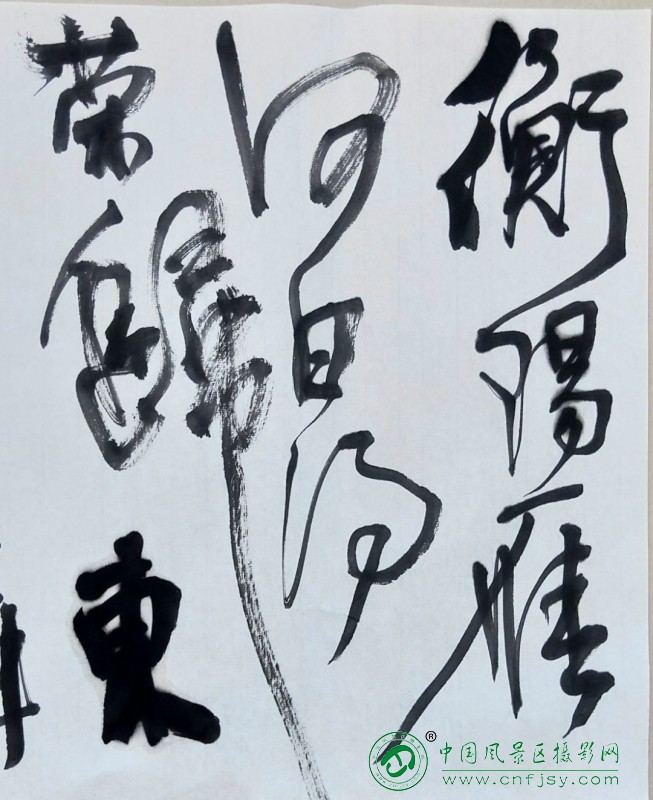 衡陽雁
何日得
榮歸東
®中国风景区摄影网
www.cnfjsy.com